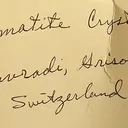 matite Cryst
avradi, Griso
Switzerland